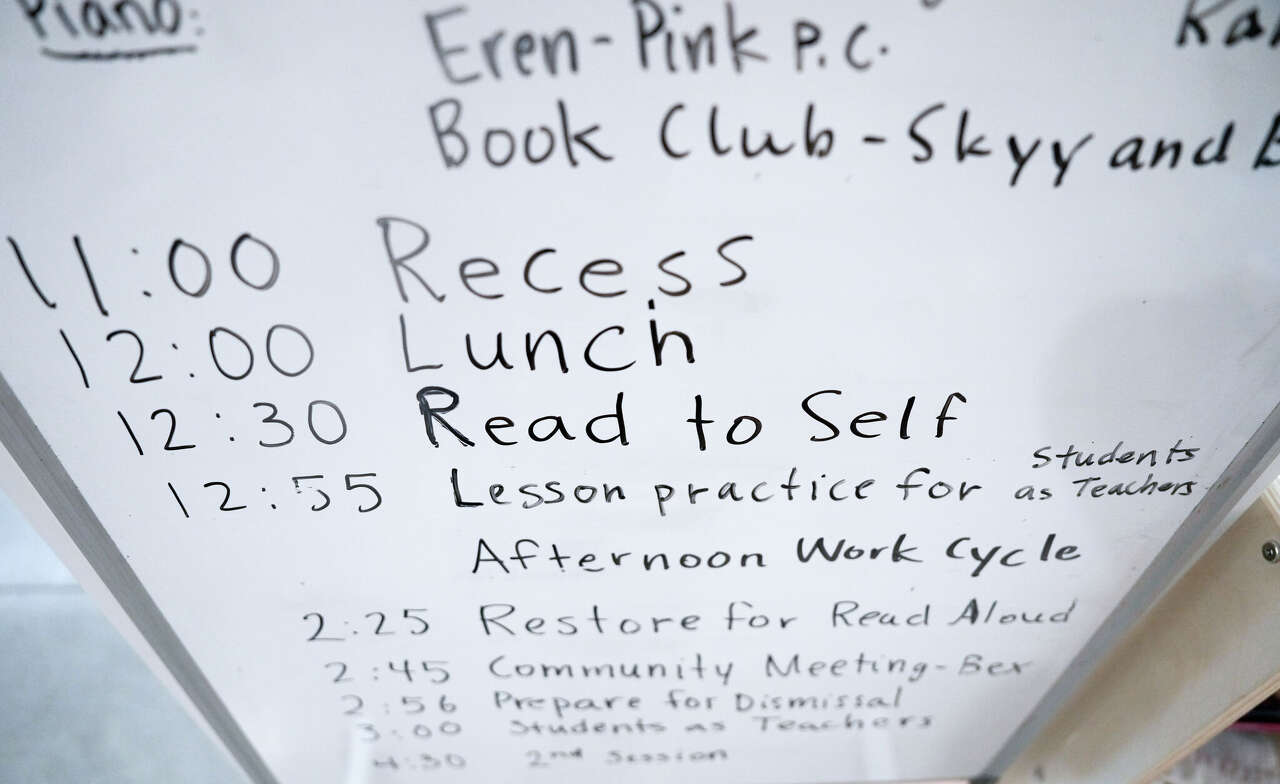 Piano:
Eren-Pink P.C.
Book Club - Skyy and
11:00 Recess
12:00 Lunch
12:30 Read to Self
12:55 Lesson practice for Students as Teachers
Afternoon Work Cycle
2:25 Restore for Read Aloud
2:45 Community Meeting-Bex
2:56 Prepare for Dismissal
3:00 Students as Teachers
4:30 2nd Session